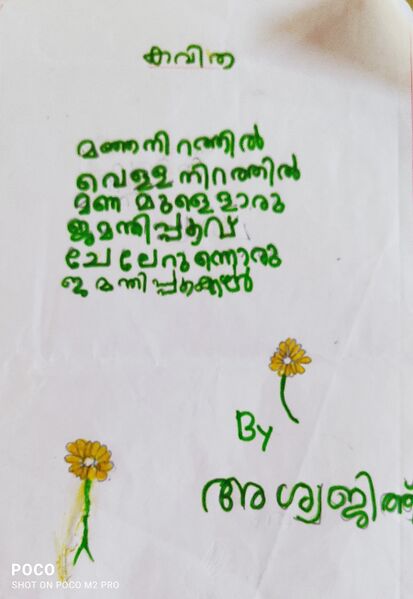 കവിത
മഞ്ഞനിറത്തിൽ
വെള്ളനിറത്തിൽ
മണമുള്ളൊരു
ജമന്തിപ്പൂവ്
ചേലേറുന്നൊരു
ജമന്തിപ്പൂക്കൾ
By
അശ്വജിത്ത്
POCO
SHOT ON POCO M2 PRO